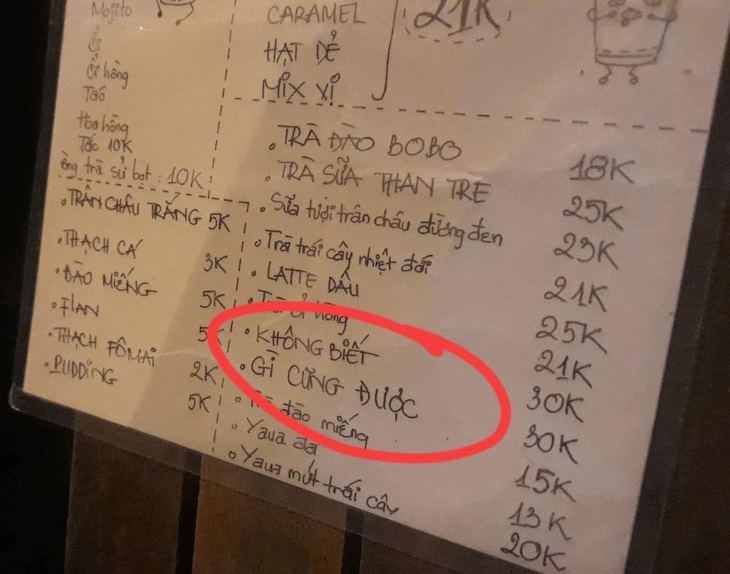 Mojito
Ổi
Ổi hồng
Táo
Hoa hồng
Tắc 10K
trà sữ bọt : 10K
• TRÂN CHÂU TRẮNG 5K
• THẠCH CÁ 3K
• ĐÀO MIẾNG 5K
• FLAN 5K
• THẠCH FÔMAI 2K
• PUDDING 5K
CARAMEL
HẠT DẺ
MIX VỊ
21K
• TRÀ ĐÀO BOBO 18K
• TRÀ SỮA THAN TRE 25K
• Sữa tươi trân châu đường đen 23K
• Trà trái cây nhiệt đới 21K
• LATTE DÂU 25K
• Trà ổi hồng 21K
• KHÔNG BIẾT 30K
• GÌ CŨNG ĐƯỢC 30K
• Trà đào miếng 15K
• Yaua đá 13K
• Yaua mứt trái cây 20K